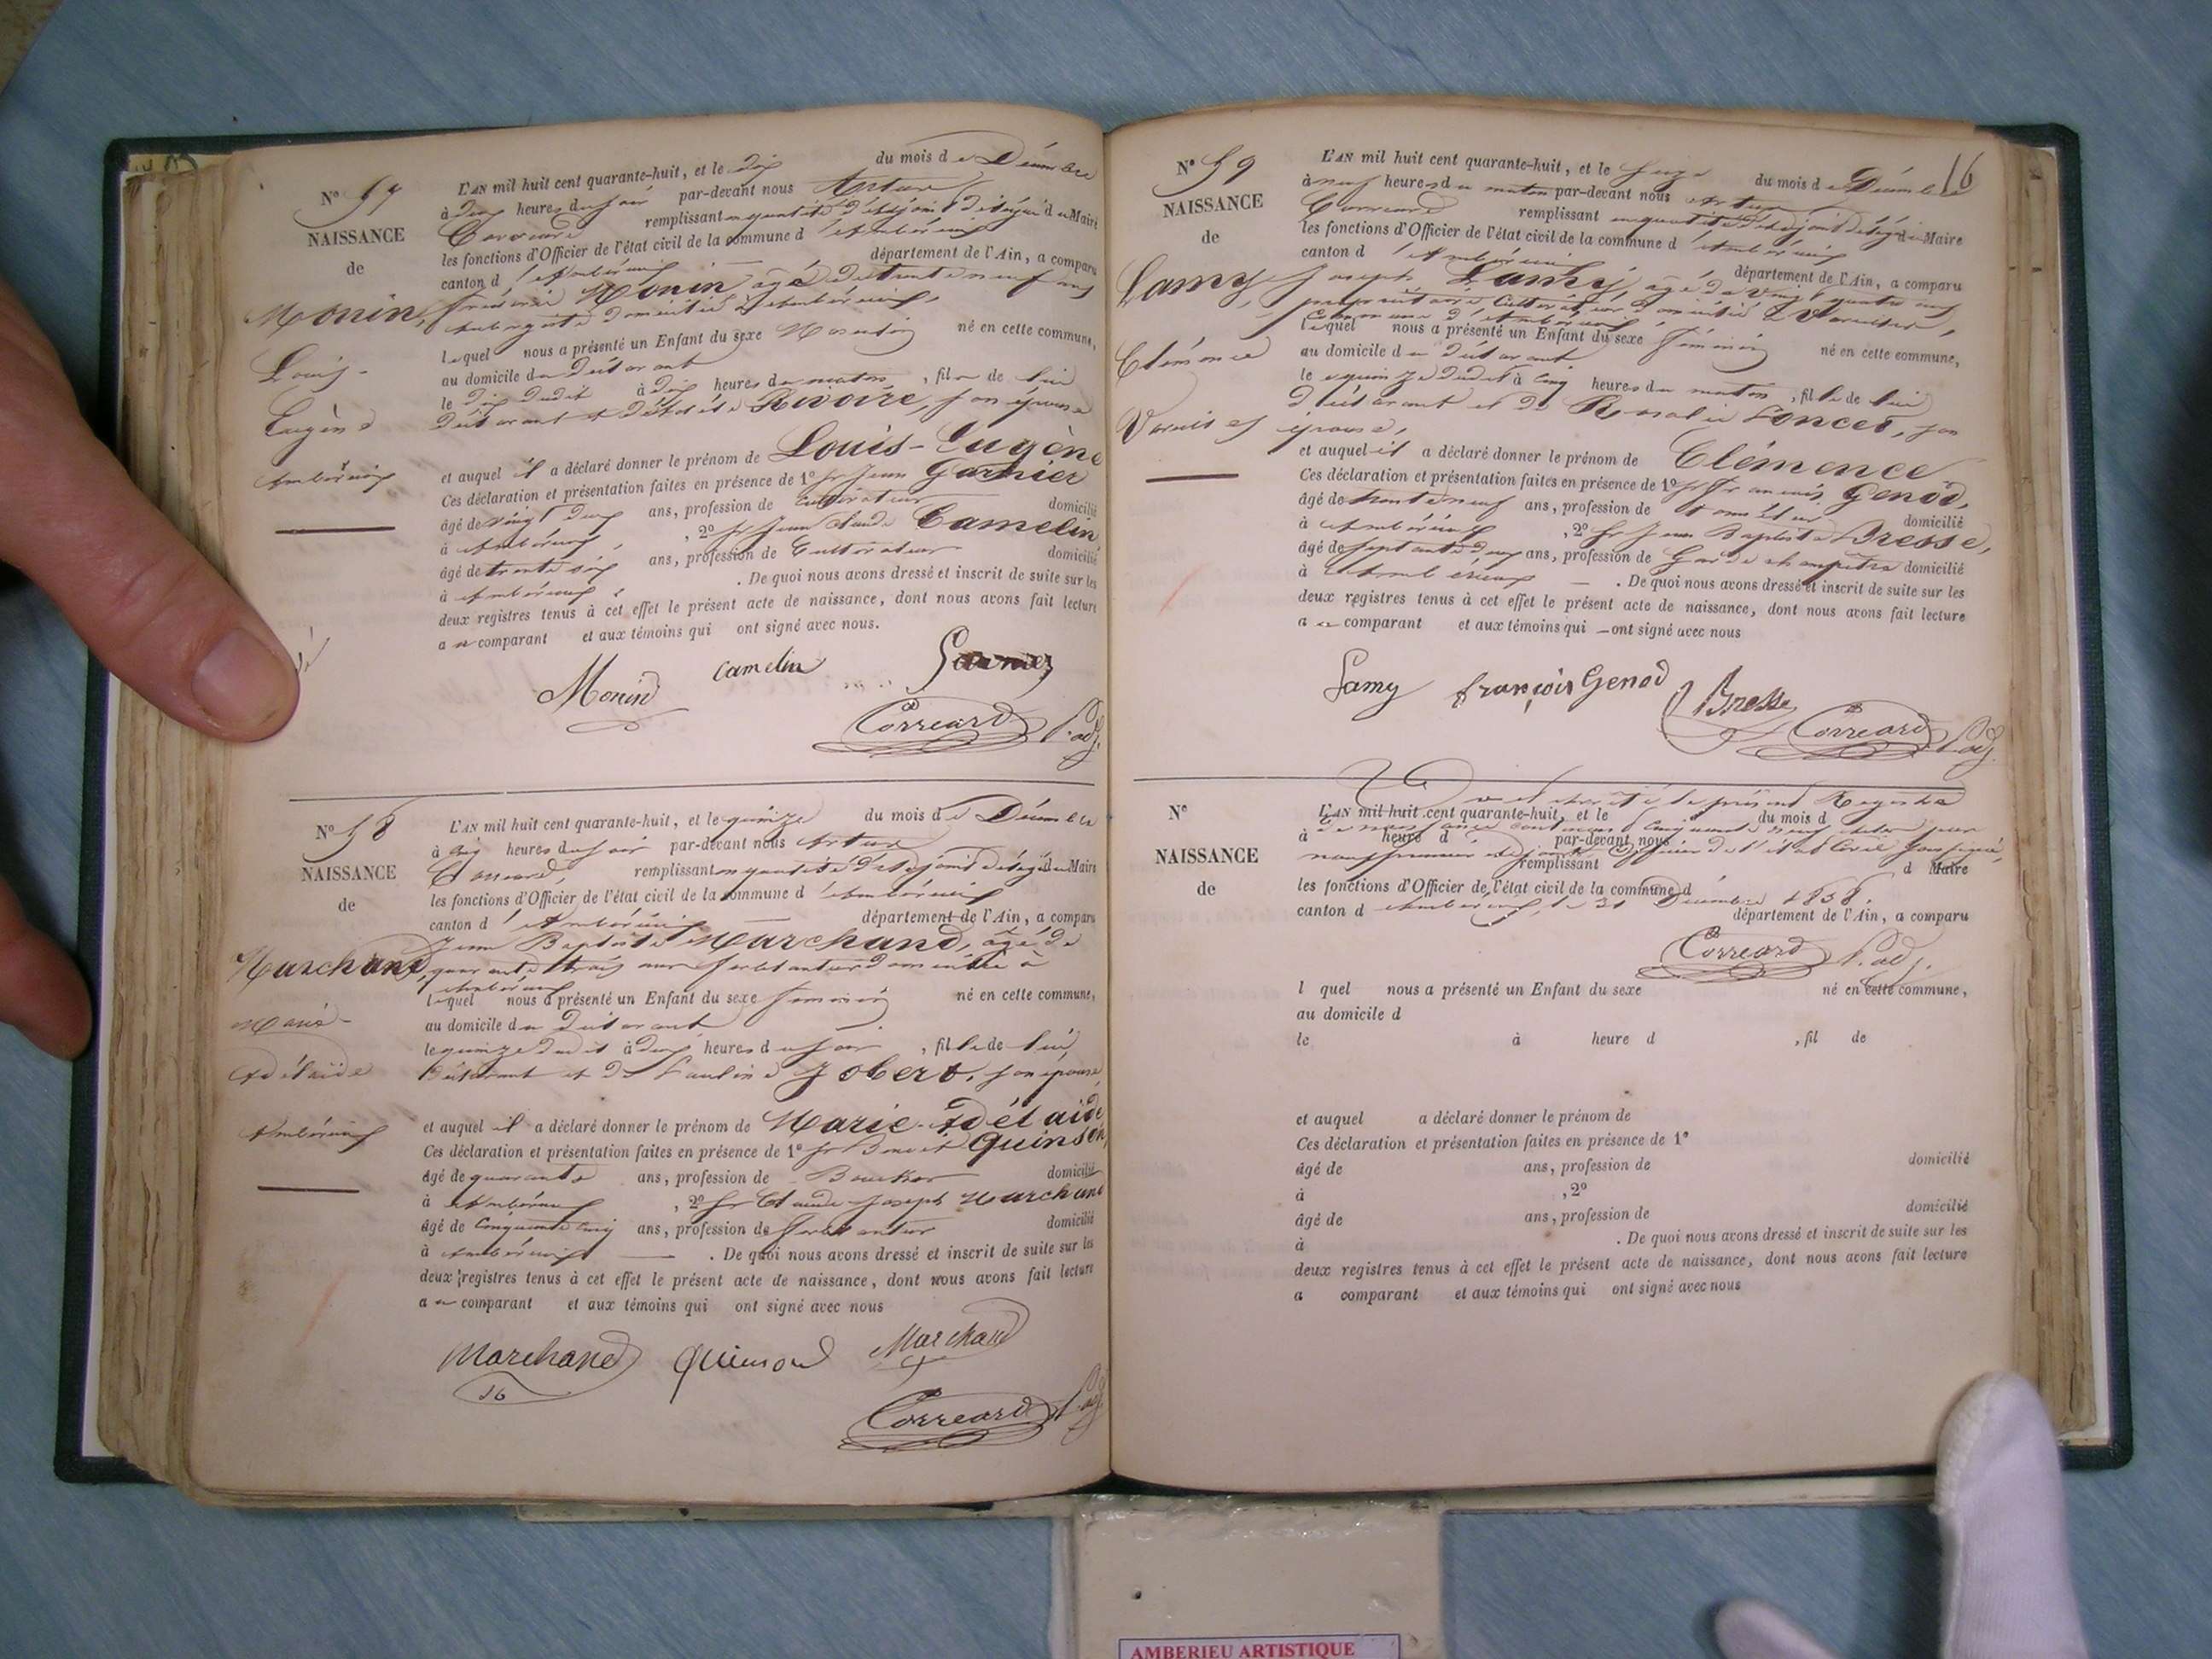 N° 57
NAISSANCE
de
Monin,
Louis-
Eugène
Ambérieux
L'AN mil huit cent quarante-huit, et le dix du mois de Décembre
à deux heures du soir par-devant nous Artur
Corréard remplissant en qualité d'adjoint délégué du Maire
les fonctions d'Officier de l'état civil de la commune d'Ambérieux
canton d'Ambérieux département de l'Ain, a comparu
Monin âgé de trente neuf ans
Aubergiste domicilié à Ambérieux,
lequel nous a présenté un Enfant du sexe Masculin né en cette commune,
au domicile du Déclarant
le dix dudit à dix heures du matin, fils de lui
Déclarant et de Rivoire, son épouse
et auquel il a déclaré donner le prénom de Louis-Eugène
Ces déclaration et présentation faites en présence de 1° Sr Jean Garnier
âgé de vingt deux ans, profession de Cultivateur domicilié
à Ambérieux, 2° Sr Jean Claude Camelin,
âgé de trente six ans, profession de Cultivateur domicilié
à Ambérieux. De quoi nous avons dressé et inscrit de suite sur les
deux registres tenus à cet effet le présent acte de naissance, dont nous avons fait lecture
au comparant et aux témoins qui ont signé avec nous.
Monin camelin Garnier
Corréard P. adj.
N° 58
NAISSANCE
de
Marchand,
Marie-
Adélaïde
Ambérieux
L'AN mil huit cent quarante-huit, et le quinze du mois de Décembre
à cinq heures du soir par-devant nous Artur
Corréard, remplissant en qualité d'adjoint délégué du Maire
les fonctions d'Officier de l'état civil de la commune d'Ambérieux
canton d'Ambérieux département de l'Ain, a comparu
Jean Baptiste Marchand, âgé de
quarante trois ans ferblantier domicilié à
Ambérieux
lequel nous a présenté un Enfant du sexe féminin né en cette commune,
au domicile du Déclarant
le quinze dudit à deux heures du soir, fille de lui
Déclarant et de Pauline Jobert, son épouse,
et auquel il a déclaré donner le prénom de Marie-Adélaïde
Ces déclaration et présentation faites en présence de 1° Sr Benoit Quinson,
âgé de quarante ans, profession de Boucher domicilié
à Ambérieux, 2° Sr Claude Joseph Marchand
âgé de Cinquante cinq ans, profession de ferblantier domicilié
à Ambérieux. De quoi nous avons dressé et inscrit de suite sur les
deux registres tenus à cet effet le présent acte de naissance, dont nous avons fait lecture
au comparant et aux témoins qui ont signé avec nous
Marchand Quinson Marchand
Corréard P. adj
16
N° 59
NAISSANCE
de
Lamy
Clémence
Vareilles
L'AN mil huit cent quarante-huit, et le seize du mois de Décembre
à neuf heures du matin par-devant nous Artur
Corréard remplissant en qualité d'adjoint délégué du Maire
les fonctions d'Officier de l'état civil de la commune d'Ambérieux
canton d'Ambérieux département de l'Ain, a comparu
Joseph Lamy, âgé de vingt quatre ans
propriétaire Cultivateur domicilié à Vareilles,
Commune d'Ambérieux,
lequel nous a présenté un Enfant du sexe féminin né en cette commune,
au domicile du Déclarant
le quinze dudit à cinq heures du matin, fille de lui
Déclarant et de Rosalie Poncet, son
épouse,
et auquel il a déclaré donner le prénom de Clémence
Ces déclaration et présentation faites en présence de 1° Sr François Genod,
âgé de trente neuf ans, profession de domicilié
à Ambérieux, 2° Sr Jean Baptiste Bresse,
âgé de septante deux ans, profession de Garde champêtre domicilié
à Ambérieux. De quoi nous avons dressé et inscrit de suite sur les
deux registres tenus à cet effet le présent acte de naissance, dont nous avons fait lecture
au comparant et aux témoins qui ont signé avec nous
Lamy françois Genod Bresse
Corréard P. adj.
N°
NAISSANCE
de
Clos et arrêté le présent Registre
L'AN mil huit cent quarante-huit, et le du mois d
de naissance contenant cinquante neuf actes par
à heure d par-devant nous
nous premier adjoint Officier de l'état Civil soussigné,
remplissant d Maire
les fonctions d'Officier de l'état civil de la commune d
canton d Ambérieux, le 31 Décembre 1848. département de l'Ain, a comparu
Corréard P. adj.
l quel nous a présenté un Enfant du sexe né en cette commune,
au domicile d
le à heure d , fil de
et auquel a déclaré donner le prénom de
Ces déclaration et présentation faites en présence de 1°
âgé de ans, profession de domicilié
à , 2°
âgé de ans, profession de domicilié
à . De quoi nous avons dressé et inscrit de suite sur les
deux registres tenus à cet effet le présent acte de naissance, dont nous avons fait lecture
a comparant et aux témoins qui ont signé avec nous
AMBERIEU ARTISTIQUE